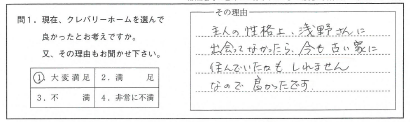 問1．現在、クレバリーホームを選んで
良かったとお考えですか。
又、その理由もお聞かせ下さい。
1．大変満足
2．満　　足
3．不　　満
4．非常に不満
その理由
主人の性格上、浅野さんに
出会ってなかったら、今も古い家に
住んでいたかも しれません
なので 良かったです